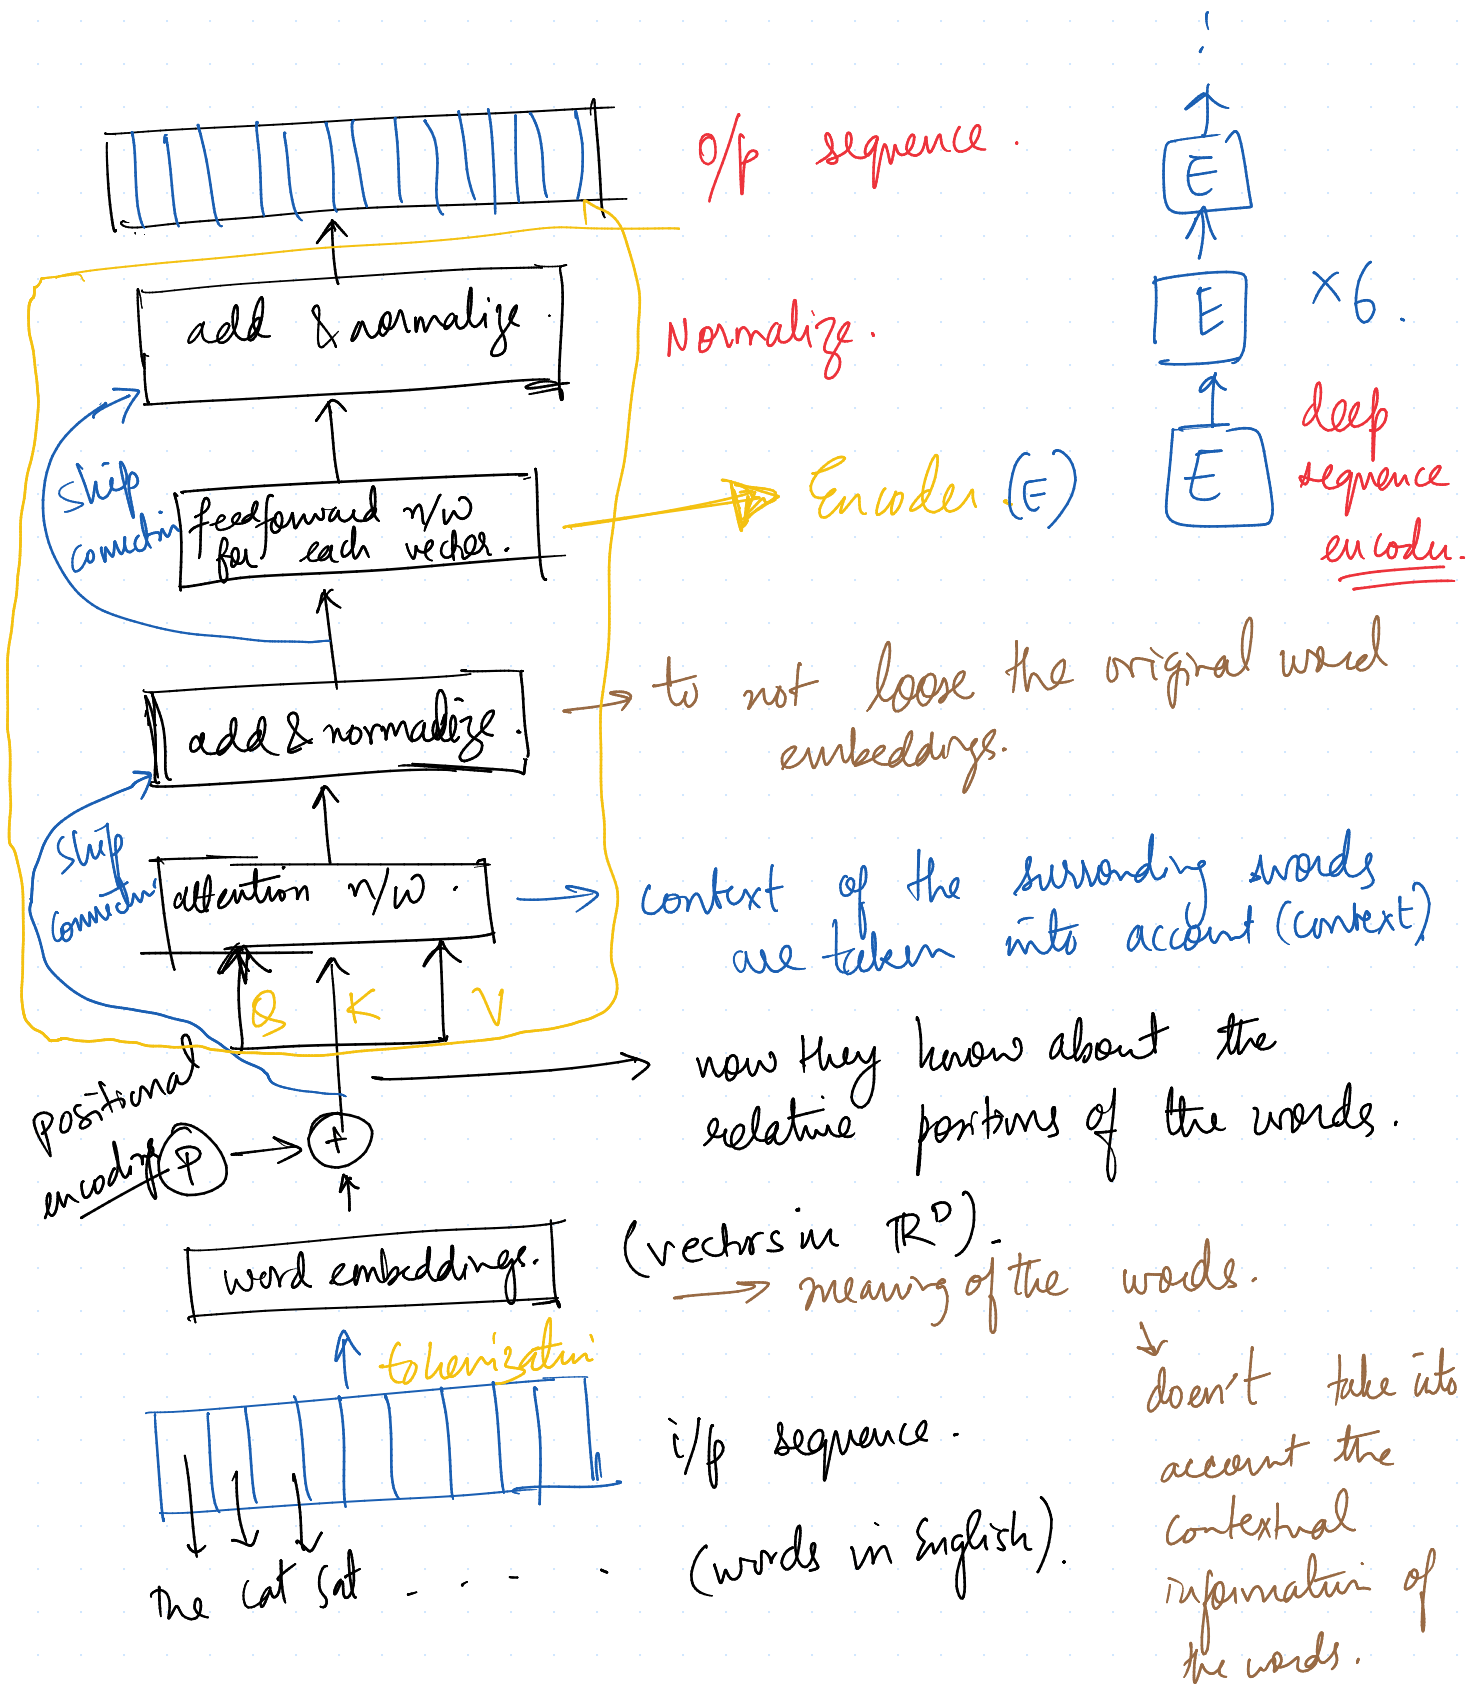 O/p sequence.
E
add & normalize.
Normalize.
E
x6.
skip
connectin
feedforward n/w
for each vector.
Encoder (E)
E
deep
sequence
encoder.
add & normalize.
to not loose the original word
embeddings.
skip
connectin
attention n/w.
context of the surronding words
are taken into account (context)
Q K V
now they know about the
relative positions of the words.
Positional
encoding P
+
word embeddings.
(vectors in ℝᴰ).
meaning of the words.
doesn't take into
account the
contextual
information of
the words.
tokenization
i/p sequence.
The cat sat - . - .
(words in English).